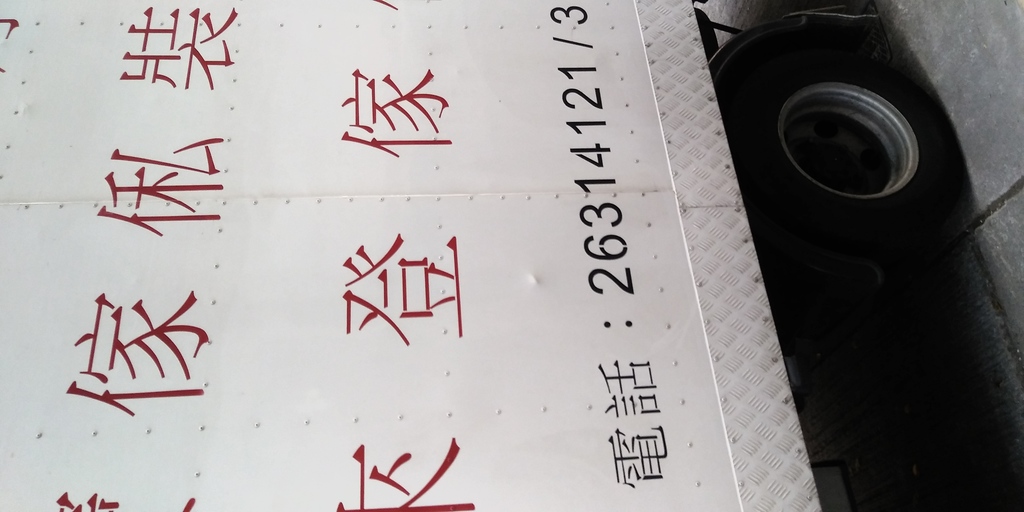 傢俬裝
登傢
電話：26314121/3